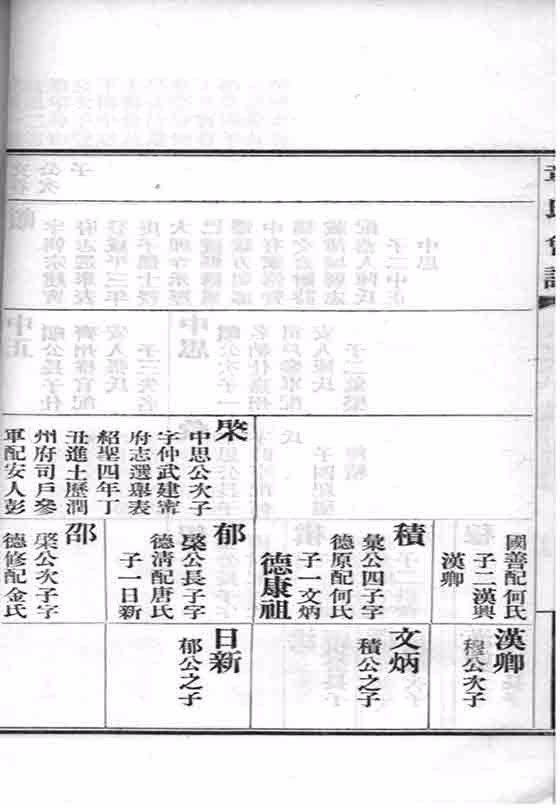 章氏會譜
棨
中思公次子
字仲武建寧
府志選舉表
紹聖四年丁
丑進士歷潤
州府司戶參
軍配安人彭
國善配何氏
子二漢興
漢卿
積
彙公四子字
德原配何氏
子一文炳
德康祖
郁
棨公長子字
德清配唐氏
子一日新
邵
棨公次子字
德修配金氏
漢卿
穆公次子
文炳
積公之子
日新
郁公之子